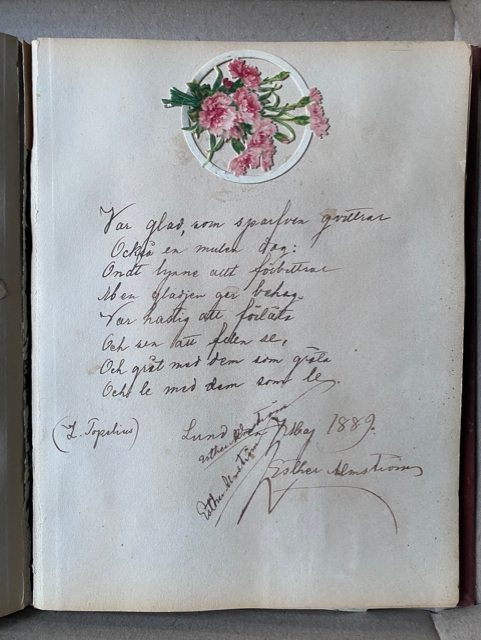 Var glad, som sparfven qvittrar
Också en mulen dag:
Ondt lynne allt förbittrar
Men glädjen ger behag.
Var hastig att förlåta
Och sen att felen se,
Och gråt med dem som gråta
Och le med dem som le.
(Z. Topelius)
Lund den 7 Maj 1889.
Esther Almström
Esther Almström
Esther Almström